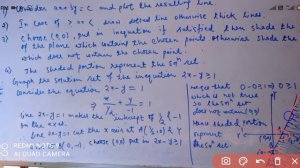 Consider ax+by = c and plot the resulting line.
2) In case of > or < draw dotted line otherwise thick lines.
3) Choose (0,0), put in inequation if satisfied then shade the
of the plane which contains the chosen points. Otherwise shade the
which does not contain the chosen point.
4) The shaded portion represent the solⁿ set
Graph the solution set of the inequation 2x-y≥1
Consider the equation 2x-y=1
⇒ x/½ + y/-1 = 1
line 2x-y=1 makes the intercept of ½ & -1
on the axes.
line 2x-y=1 cut the x axis at (½,0) & Y
(0,-1). choose (0,0) put in 2x-y≥1
notice that 0-0≥1 ⇒ 0≥1
which is not true
so the solⁿ set
does not contain (0,0)
shaded portion
represent
the solⁿ set
REDMI NOTE
AI QUAD CAMERA